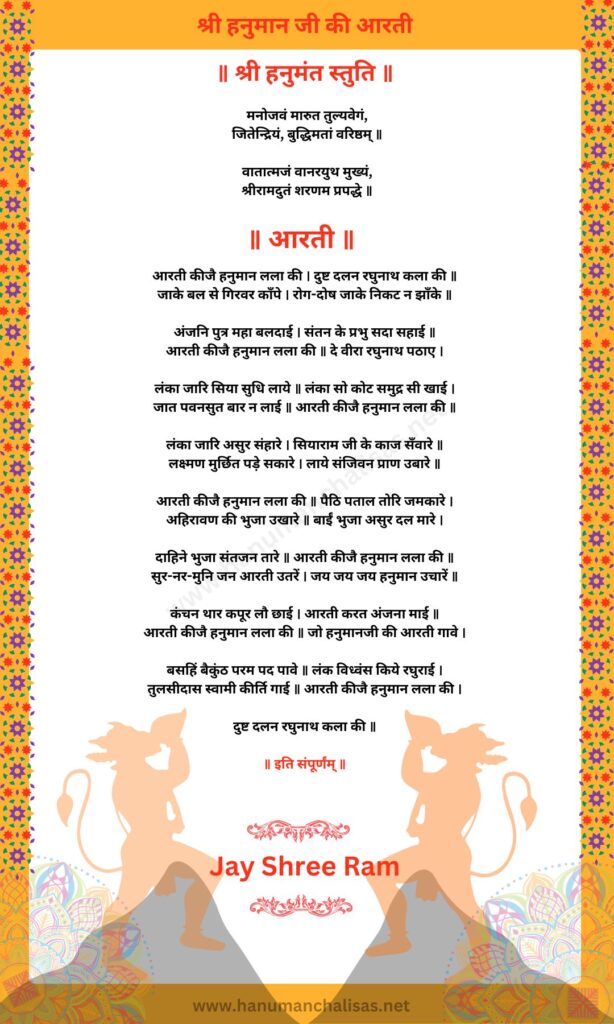 श्री हनुमान जी की आरती
॥ श्री हनुमंत स्तुति ॥
मनोजवं मारुत तुल्यवेगं,
जितेन्द्रियं, बुद्धिमतां वरिष्ठम् ॥
वातात्मजं वानरयुथ मुख्यं,
श्रीरामदुतं शरणम प्रपद्धे ॥
॥ आरती ॥
आरती कीजै हनुमान लला की । दुष्ट दलन रघुनाथ कला की ॥
जाके बल से गिरवर काँपे । रोग-दोष जाके निकट न झाँके ॥
अंजनि पुत्र महा बलदाई । संतन के प्रभु सदा सहाई ॥
आरती कीजै हनुमान लला की ॥ दे वीरा रघुनाथ पठाए ।
लंका जारि सिया सुधि लाये ॥ लंका सो कोट समुद्र सी खाई ।
जात पवनसुत बार न लाई ॥ आरती कीजै हनुमान लला की ॥
लंका जारि असुर संहारे । सियाराम जी के काज सँवारे ॥
लक्ष्मण मुर्छित पड़े सकारे । लाये संजिवन प्राण उबारे ॥
आरती कीजै हनुमान लला की ॥ पैठि पताल तोरि जमकारे ।
अहिरावण की भुजा उखारे ॥ बाईं भुजा असुर दल मारे ।
दाहिने भुजा संतजन तारे ॥ आरती कीजै हनुमान लला की ॥
सुर-नर-मुनि जन आरती उतरें । जय जय जय हनुमान उचारें ॥
कंचन थार कपूर लौ छाई । आरती करत अंजना माई ॥
आरती कीजै हनुमान लला की ॥ जो हनुमानजी की आरती गावे ।
बसहिं बैकुंठ परम पद पावे ॥ लंक विध्वंस किये रघुराई ।
तुलसीदास स्वामी कीर्ति गाई ॥ आरती कीजै हनुमान लला की ।
दुष्ट दलन रघुनाथ कला की ॥
॥ इति संपूर्णंम् ॥
Jay Shree Ram
www.hanumanchalisas.net
www.hanumanchalisas.net